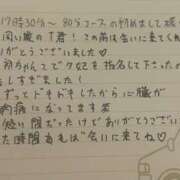 17時30分〜80分コースの初めまして様
同い歳のT君!この前は会いに来てくれ
りがとうございました♡
初うかんこでワタを指名して下さったの
しすぎました!
ずっとドキドキしたから心臓が
肉病になってます笑
短い間だったけどありがとうござい
た時間あれば会いに来てね♡